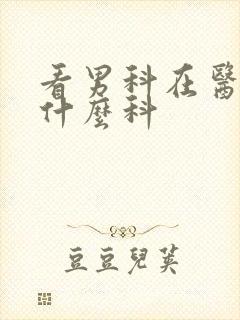 看男科在醫
什麼科
豆豆兒英